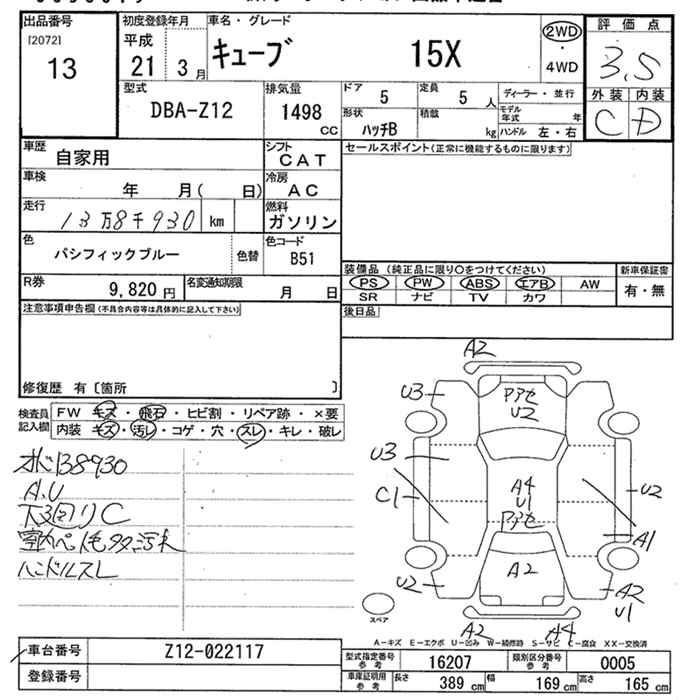 出品番号 初度登録年月 車名・グレード 2WD 評価点
[2072] 平成 キューブ 15X ・ 3.5
13 21 3月 4WD 外装 内装
型式 排気量 ドア 定員 ディーラー・並行 C D
DBA-Z12 1498 cc 5 5人 モデル年式 年
形状 積載
ハッチB kg ハンドル 左・右
車歴 シフト セールスポイント(正常に機能するものに限ります)
自家用 CAT
車検 冷房
年 月( 日) AC
走行 燃料
13万8千930 km ガソリン
色 色コード
パシフィックブルー 色替 B51
装備品(純正品に限り○をつけてください) 新車保証書
R券 名変通知期限 PS PW ABS エアB AW 有・無
9,820円 月 日 SR ナビ TV カワ
注意事項申告欄(不具合内容等は具体的に記入して下さい) 後日品
修復歴 有〔箇所 〕
検査員 FW キズ・飛石・ヒビ割・リペア跡・×要
記入欄 内装 キズ・汚レ・コゲ・穴・スレ・キレ・破レ
オド138930
A,U
下回りC
室内ペット毛多汚れ
ハンドルスレ
A2
U3 アアセ
U2
U3
C1 A4 U2
U1
アアセ A1
U2 A2 A2
U1
スペア
A2 A4
A-キズ E-エクボ U-凹み W-補修跡 S-サビ C-腐食 XX-交換済
車台番号 Z12-022117 型式指定番号 参考 16207 類別区分番号 参考 0005
登録番号 車庫証明用 参考 長さ 389 cm 幅 169 cm 高さ 165 cm